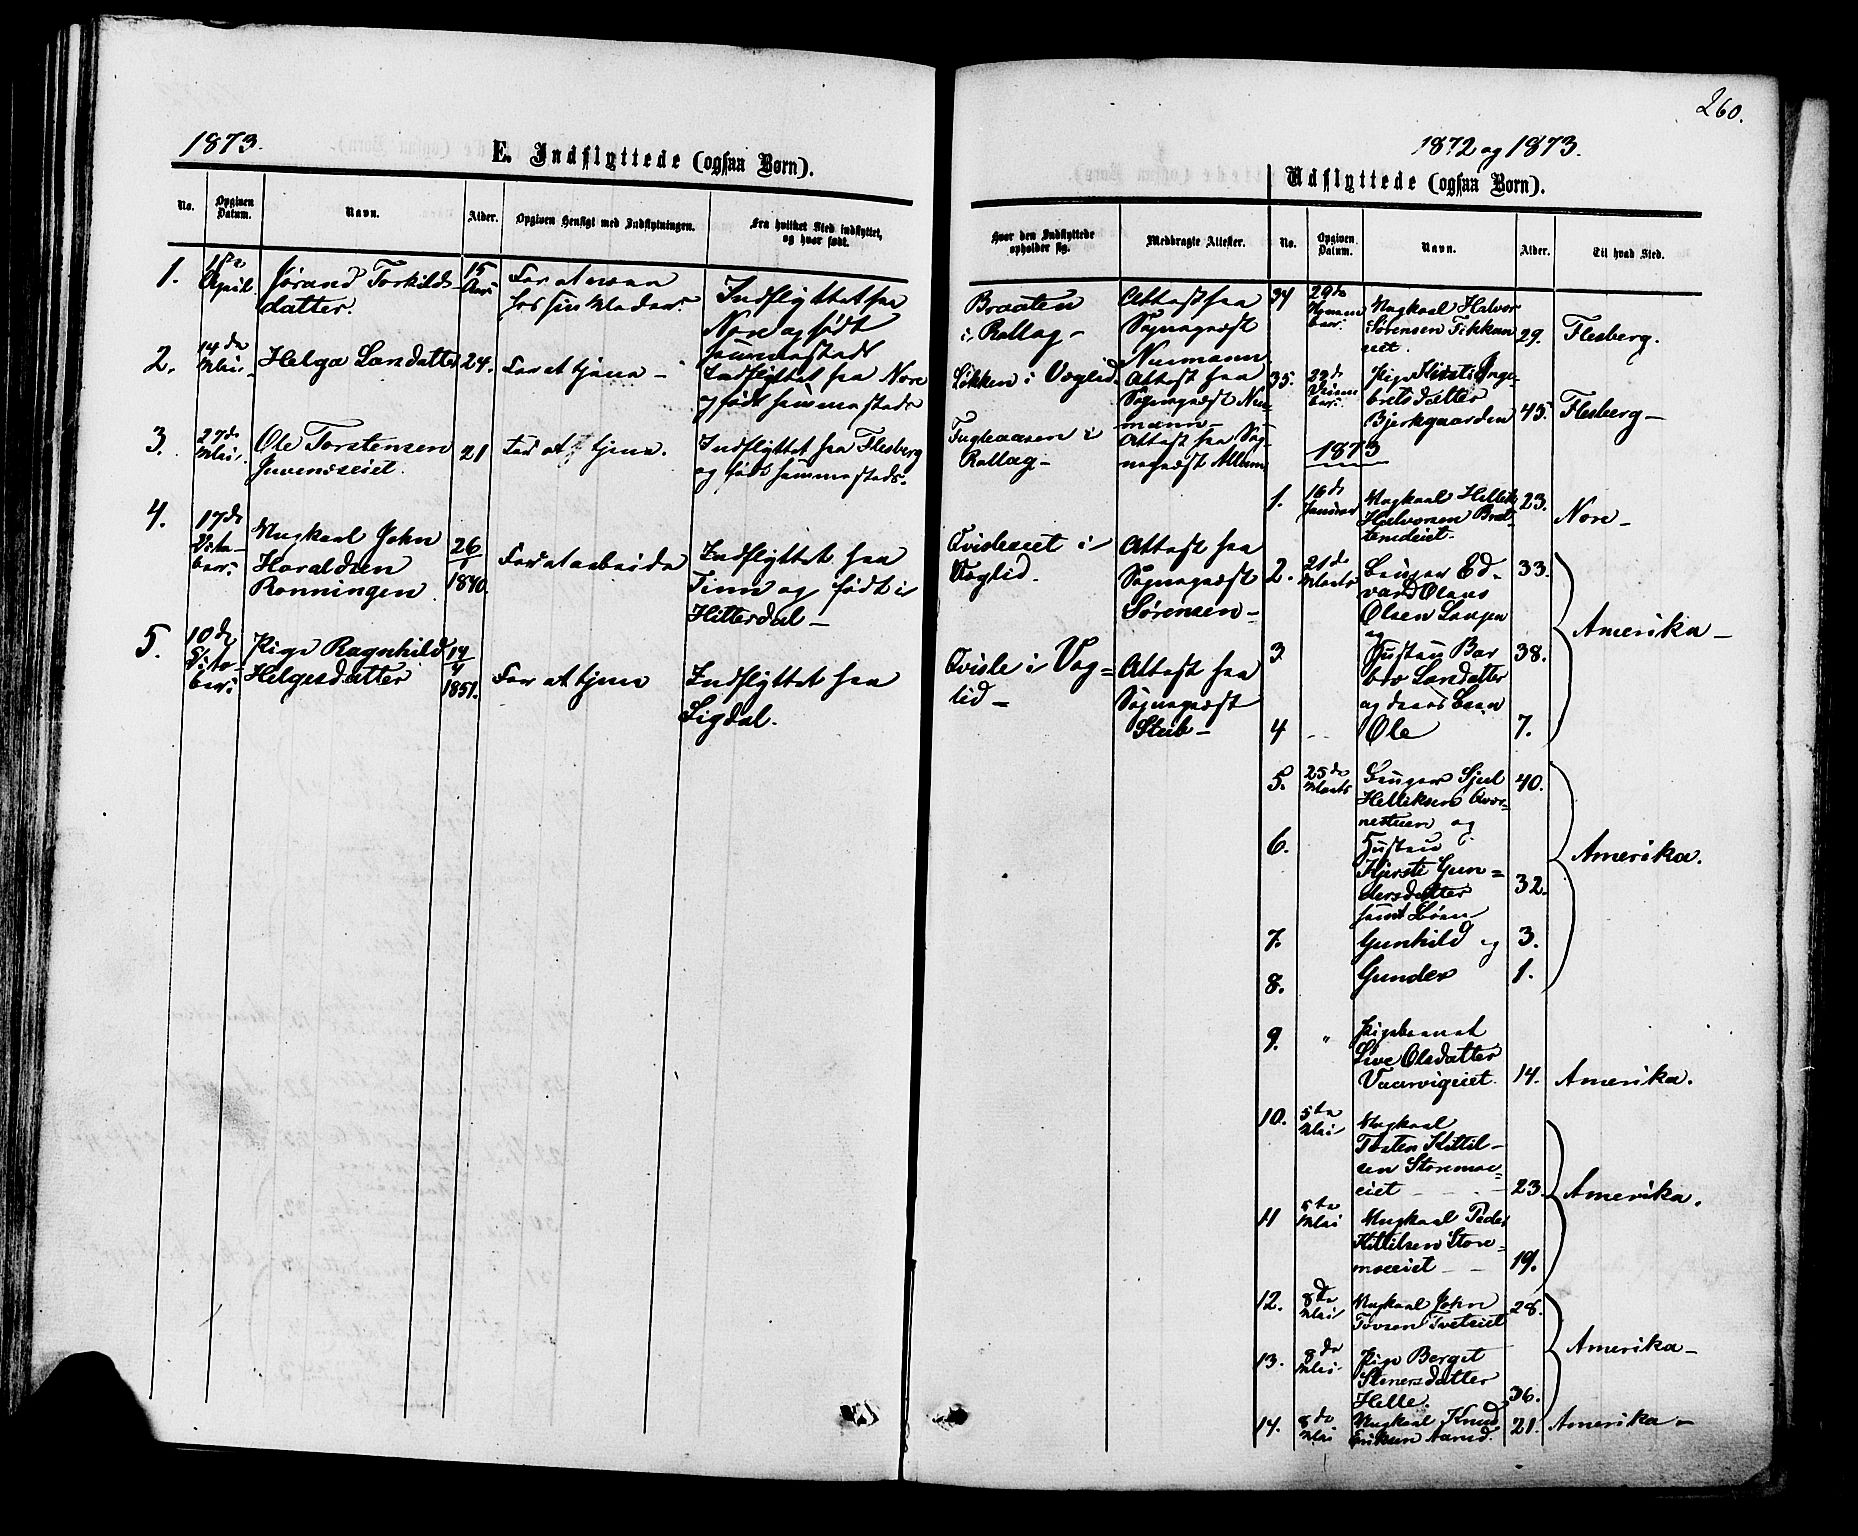 260.
1873.
E. Indflyttede (ogsaa Børn).
No.
Opgiven Datum.
Navn.
Alder.
Opgiven Hensigt med Indflytningen.
Fra hvilket Sted indflyttet, og hvor født.
Hvor den Indflyttede opholder sig.
Medbragte Attester.
1.
April
Jørand Torkilds-
datter.
15
Aar
For at være
hos sin Moder.
Indflyttet fra
Nore og født
sammesteds
Braaten
i Rollag -
Attest fra
Sognepræst
Neumann
2.
14de
Mai
Helga Larsdatter
24.
For at tjene -
Indflyttet fra Nore
og født sammesteds
Løkken i Væglid.
Attest fra
Sognepræst Neu-
mann -
3.
27de
Mai.
Ole Torstensen
Juvenseiet.
21
For at tjene.
Indflyttet fra Flesberg
og født sammesteds.
Fugleaasen i
Rollag -
Attest fra Sog-
nepræst
4.
17de
Octo-
ber.
Ungkarl John
Haraldsen
Rønningen
26/1
1840.
For at arbeide
Indflyttet fra
Tinn og født i
Hitterdal -
Qvisleeiet i
Væglid.
Attest fra
Sognepræst
Sørensen -
5.
10de
Octo-
ber.
Pige Ragnhild
Helgesdatter
14/4
1851.
For at tjene
Indflyttet fra
Sigdal.
Qvisle i Væg=
lid -
Attest fra
Sognepræst
Steib -
1872 og 1873.
Udflyttede (ogsaa Børn).
No.
Opgiven Datum.
Navn.
Alder.
Til hvad Sted.
34
29de
Novem
ber.
Ungkarl Halvor
Sørensen Fikkan
eiet.
29.
Flesberg.
35.
Decem
ber.
Pige Kirsti Inge-
bretsdatter
Bjerkgaarden
45.
Flesberg -
1873
1.
16de
Januar
Ungkarl Hellik
Halvorsen Brat-
temoeiet.
23.
Nore -
2.
21de
Marts
Inger Ed-
vard Olaus
Olsen
33.
og
3.
Hustru Bar
bro Larsdatter
og deres Barn
38.
4
Ole
7.
Amerika -
5.
25de
Marts
Sjul
Helliksen Qvær-
nestuen og
40.
6.
Hustru
Kjersti Gun=
dersdatter
samt Børn
32.
7.
Gunhild og
3.
8.
Gunder
1.
Amerika.
9.
"
Pigebarnet
Live Olsdatter
Vaarvigeiet.
14.
Amerika.
10.
5te
Mai
Ungkarl
Tosten Kittil-
sen Storemo-
eiet
23.
11
5te
Mai
Ungkarl Peder
Kittilsen Store-
moeiet
19.
Amerika.
12.
8de
Mai
Ungkarl John
Tovsen Tveteiet
28.
13.
8de
Mai
Pige Berget
Stenersdatter
Helle.
36.
Amerika -
14.
8de
Mai
Ungkarl Knud
Eriksen
21.
Amerika -